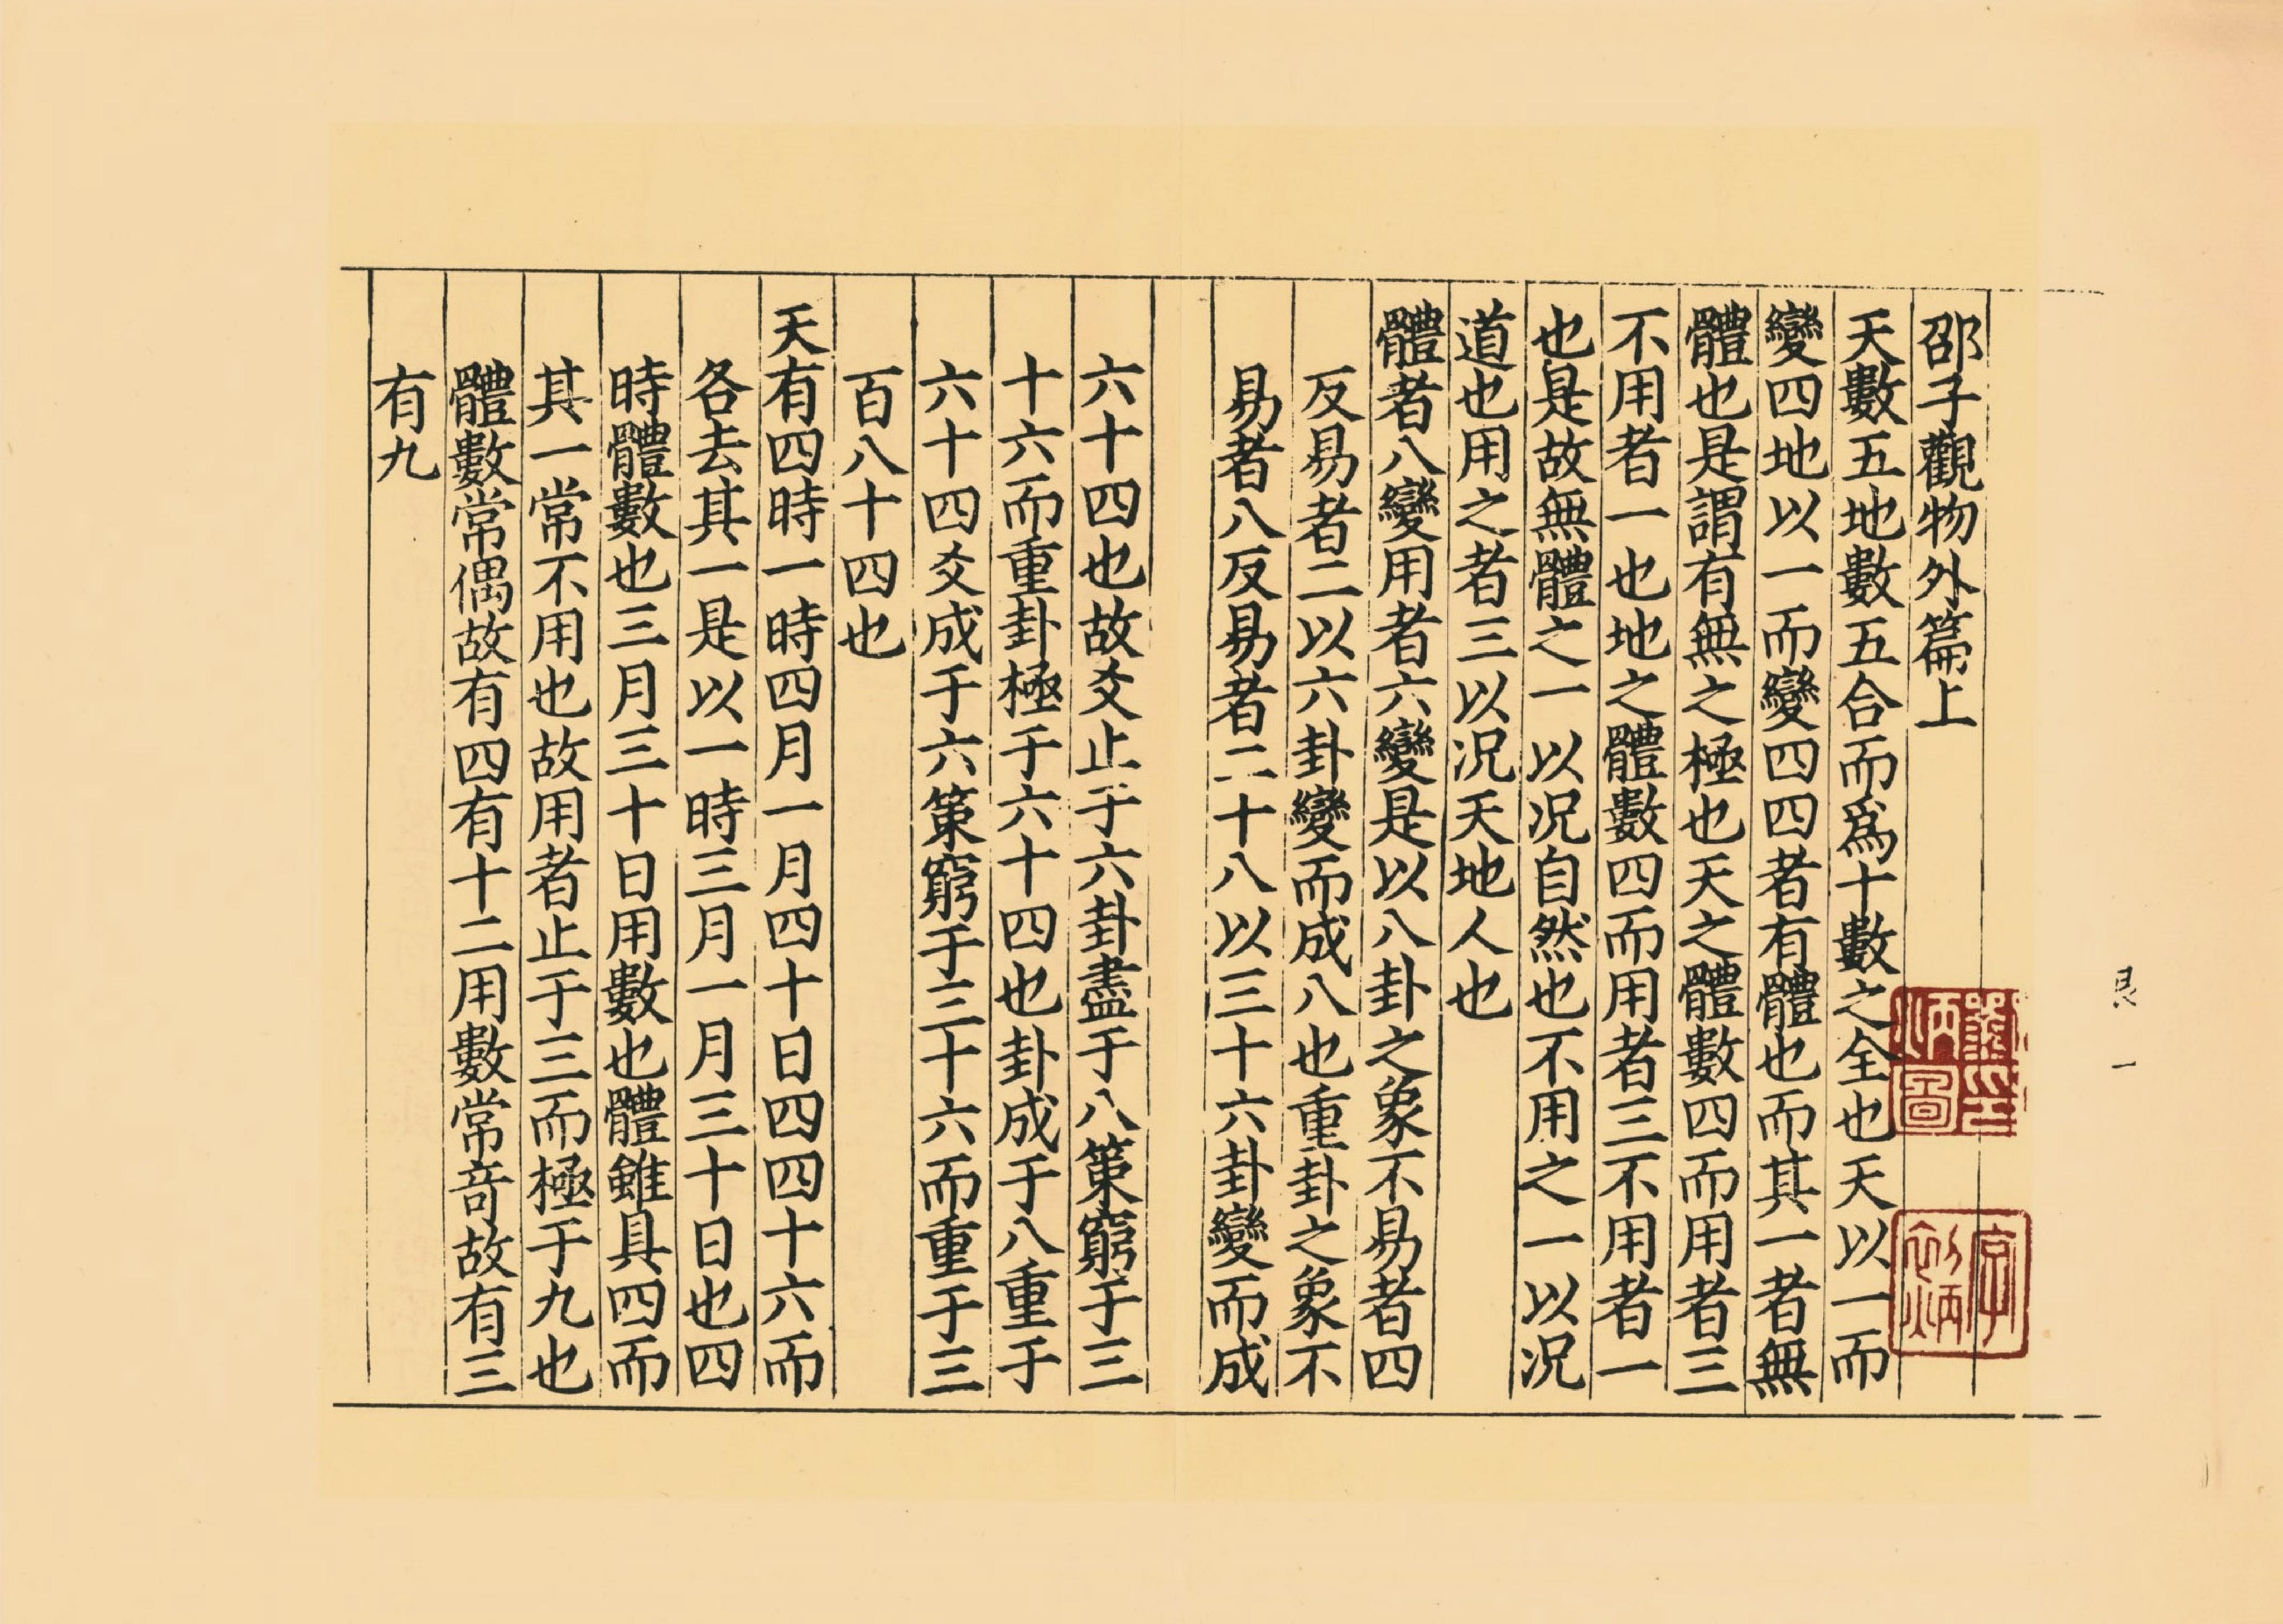 邵子觀物外篇上
天數五地數五合而爲十數之全也天以一而
變四地以一而變四四者有體也而其一者無
體也是謂有無之極也天之體數四而用者三
不用者一也地之體數四而用者三不用者一
也是故無體之一以况自然也不用之一以况
道也用之者三以况天地人也
體者八變用者六變是以八卦之象不易者四
反易者二以六卦變而成八也重卦之象不
易者八反易者二十八以三十六卦變而成
六十四也故爻止于六卦盡于八策窮于三
十六而重卦極于六十四也卦成于八重于
六十四爻成于六策窮于三十六而重于三
百八十四也
天有四時一時四月一月四十日四四十六而
各去其一是以一時三月一月三十日也四
時體數也三月三十日用數也體雖具四而
其一常不用也故用者止于三而極于九也
體數常偶故有四有十二用數常竒故有三
有九